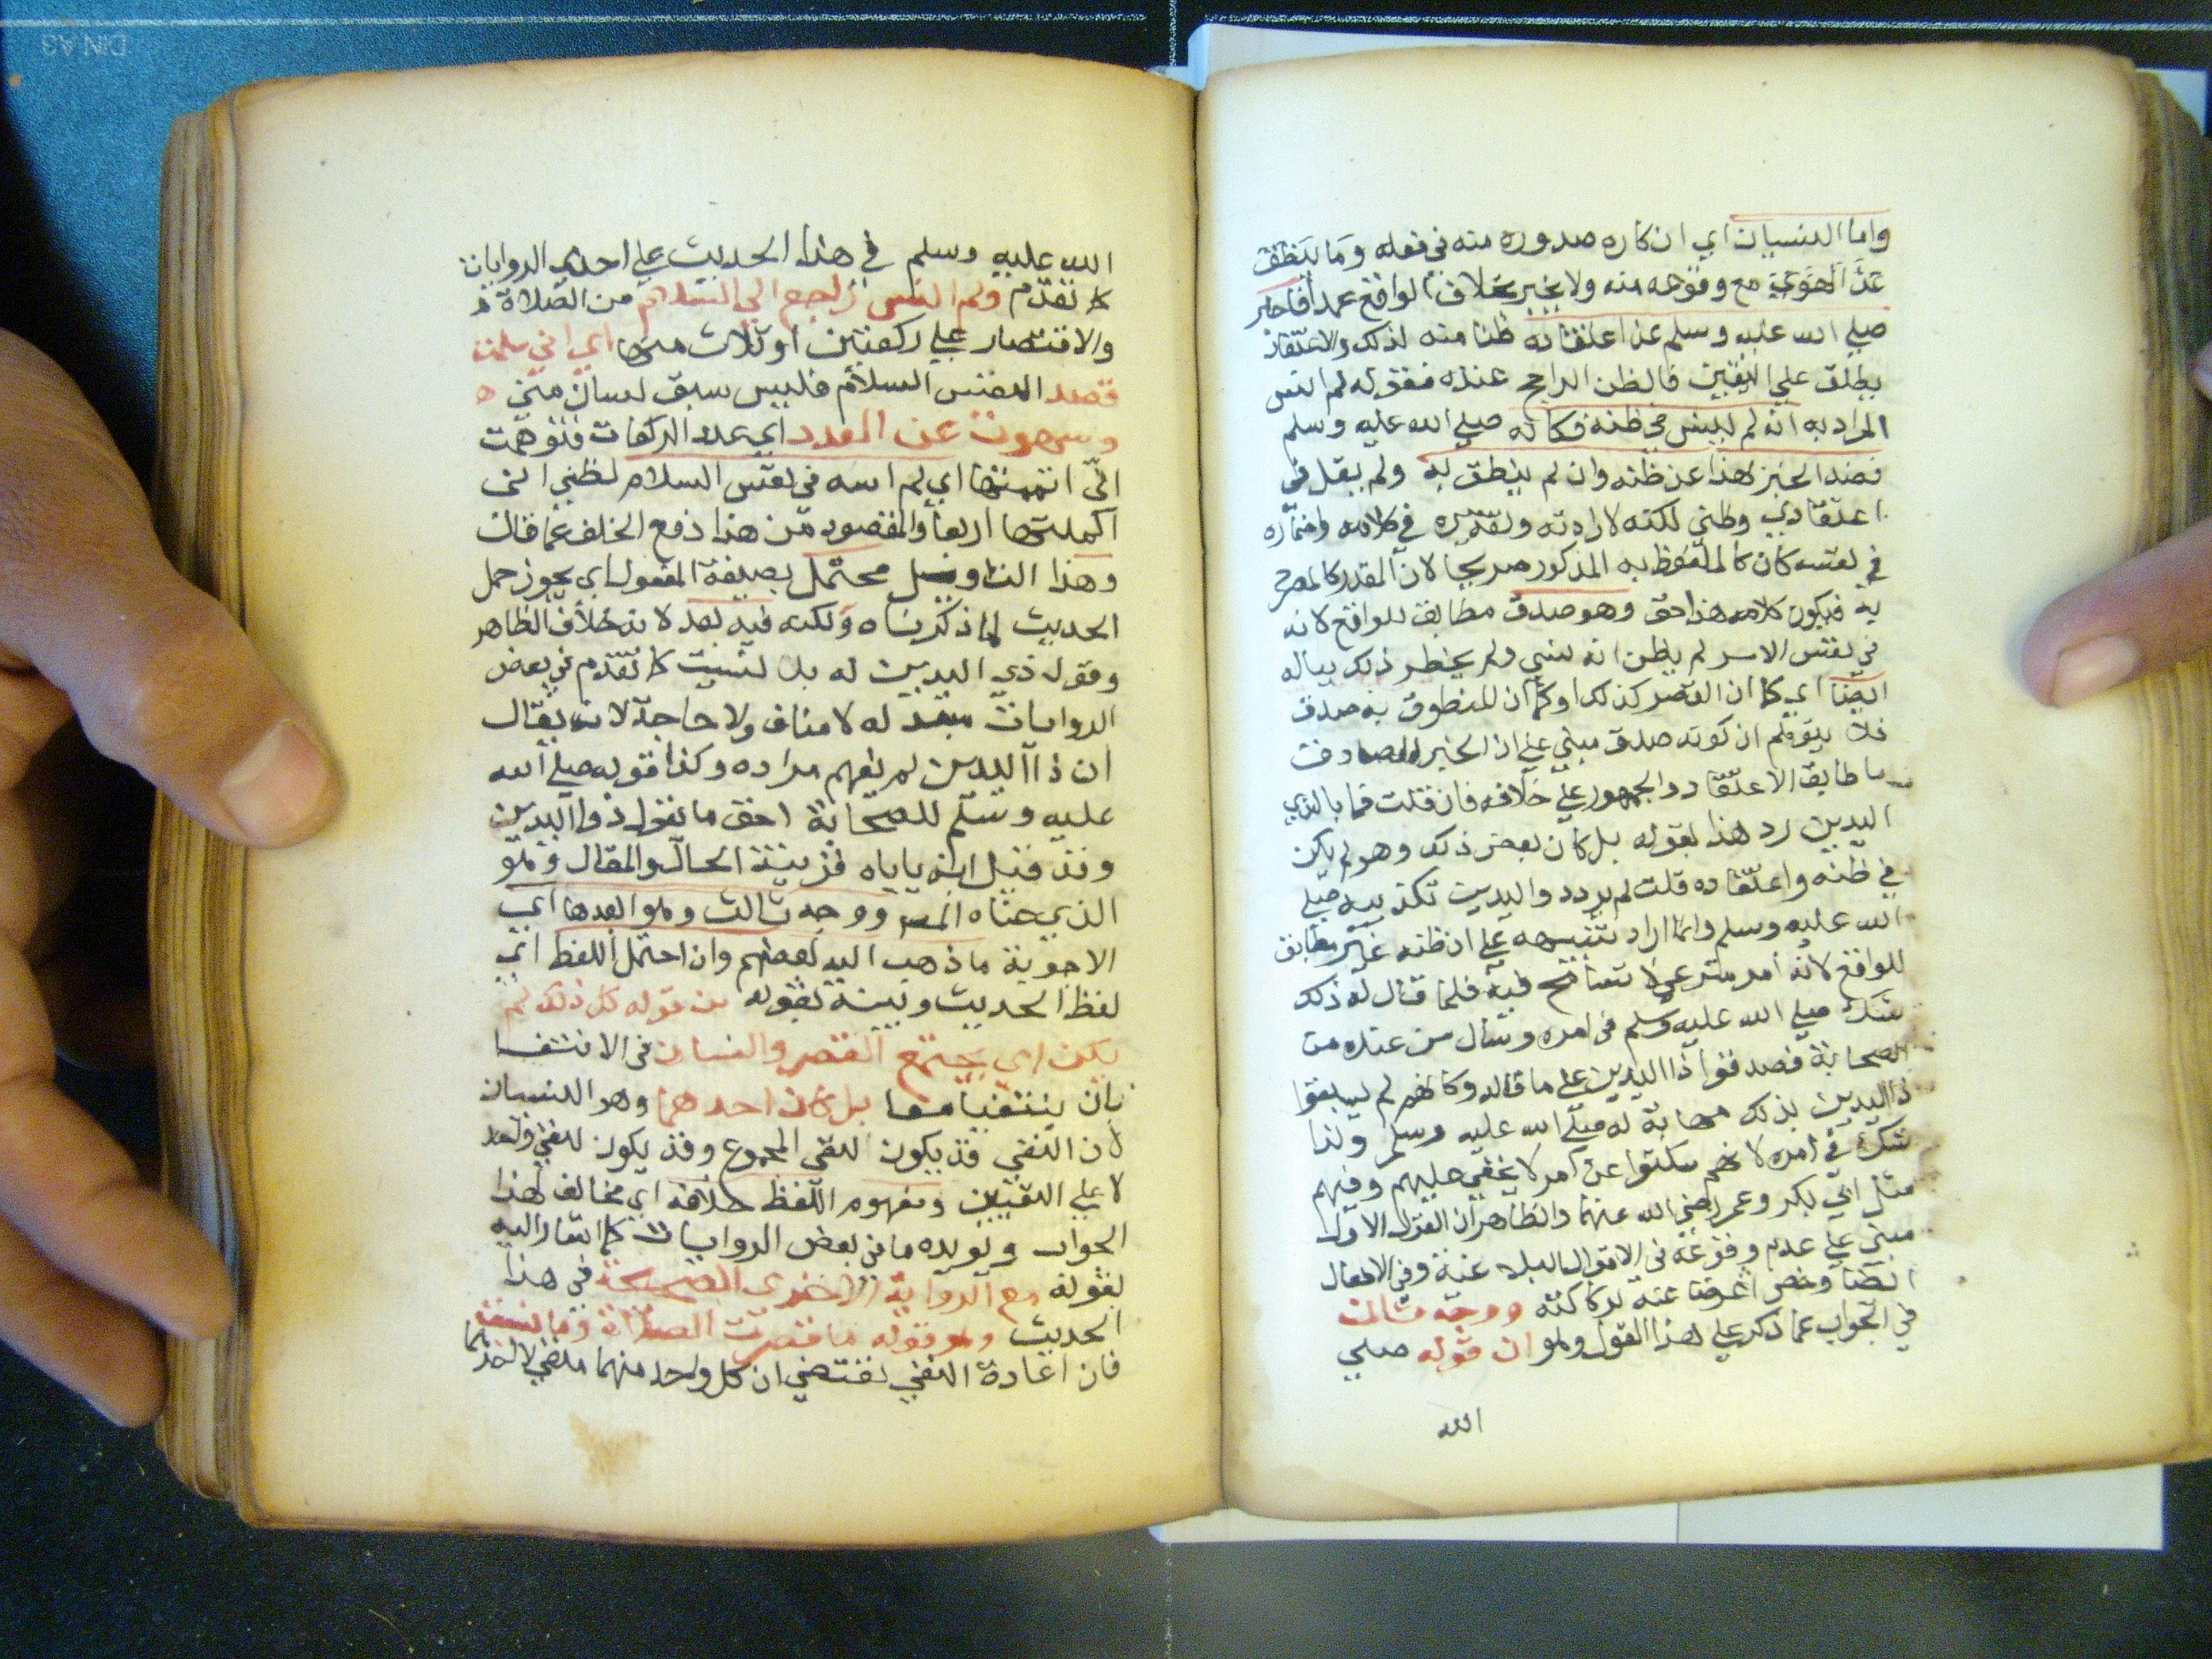 واما النسيان اي انكاره صدوره منه في فعله وَما يَنطِق
عَنِ الهَوَى مع وقوعه منه ولا يخبر بخلاف الواقع عمدا فاخبر
صلي الله عليه وسلم عن اعتقاده ظنا منه لذلك والاعتقاد
يطلق علي اليقين فالظن الراجح عنده فقوله لم انس
المراد به انه لم ينس في ظنه فكانه صلي الله عليه وسلم
قصد الخبز بهذا عن ظنه وان لم ينطق به ولم يقل في
اعتقادي وظني لكنه لارادته وتقديره في كلامه واضماره
في نفسه كان كالملفوظ به المذكور صريحا لان المقدر كالمصرح
به فيكون كلامه هذا حق وهو صدق مطابق للواقع لانه
في نفس الامر لم يظن انه نسي ولم يخطر ذلك بباله
ايضا اي كما ان القصر كذلك او كما ان المنطوق به صدق
فلا يتوهم ان كونه صدق مبني علي ان الخبر الصادق
ما طابق الاعتقاد والجمهور علي خلافه فان قلت فما بال ذي
اليدين رد هذا بقوله بل كان بعض ذلك وهو لم يكن
في ظنه واعتقاده قلت لم يرد ذو اليدين تكذيبه صلي
الله عليه وسلم وانما اراد تنبيهه علي ان ظنه غير مطابق
للواقع لانه امر شرعي لا تسامح فيه فلما قال له ذلك
شك صلي الله عليه وسلم في امره وسأل من عنده من
الصحابة فصدقوا ذا اليدين علي ما قاله وكانهم لم يسبقوا
ذا اليدين بذلك مهابة له صلي الله عليه وسلم ولذا
شك في امره لانهم سكتوا عن امر لا يخفي عليهم وفيهم
مثل ابي بكر وعمر رضي الله عنهما والظاهر ان القول الاول
مبني علي عدم وقوعه في الاقوال البلاغية وفي الافعال
ايضا وحص اعرضا عنه لركاكته ووجه ثالث
في الجواب عما ذكر علي هذا القول وهو ان قوله صلي
الله
الله عليه وسلم في هذا الحديث علي احدي الروايات
كما تقدم ولم انس راجع الي السلام من الصلاة
والاقتصار علي ركعتين او ثلاث منها اي اني سلمت
قصد المفسر السلام فليس سبق لسان مني
وسهوت عن العدد اي عدد الركعات فتوهمت
انّي اتممتها اي لم اسه في نفس السلام لظني اني
اكملتها اربعا والمقصود من هذا دفع الخلف عما قال
وهذا التاويل محتمل بصيغة المفعول اي يجوز حمل
الحديث لما ذكرناه ولكنه فيه بعد لانه خلاف الظاهر
وقول ذي اليدين له بل نسيت كما تقدم في بعض
الروايات مبعد له لا مناف ولا حاجة لان يقال
ان ذا اليدين لم يفهم مراده وكذا قوله صلي الله
عليه وسلم للصحابة احق ما يقول ذو اليدين
وقد قيل انه ياباه قرينة الحال والمقال وهو
الذي حثاه ووجه ثالث وهو ابعدها اي
الاجوبة ما ذهب اليه بعضهم وان احتمل اللفظ اي
لفظ الحديث وبينه بقوله من قوله كل ذلك لم
يكن اي يجتمع القصر والنسيان في الانتفا
بان ينتفيا معا بل كان احدهما وهو النسيان
لان النفي قد يكون لنفي المجموع وقد يكون للنفي
لا علي التقيين ومفهوم اللفظ خلافه اي مخالف لهذا
الجواب ويويده ما في بعض الروايات كما اشار اليه
بقوله مع الرواية الاخري الصحيحة في هذا
الحديث وهو قوله ما قصرت الصلاة وما نسيت
فان اعادة النفي تقتضي ان كل واحد منهما منفي